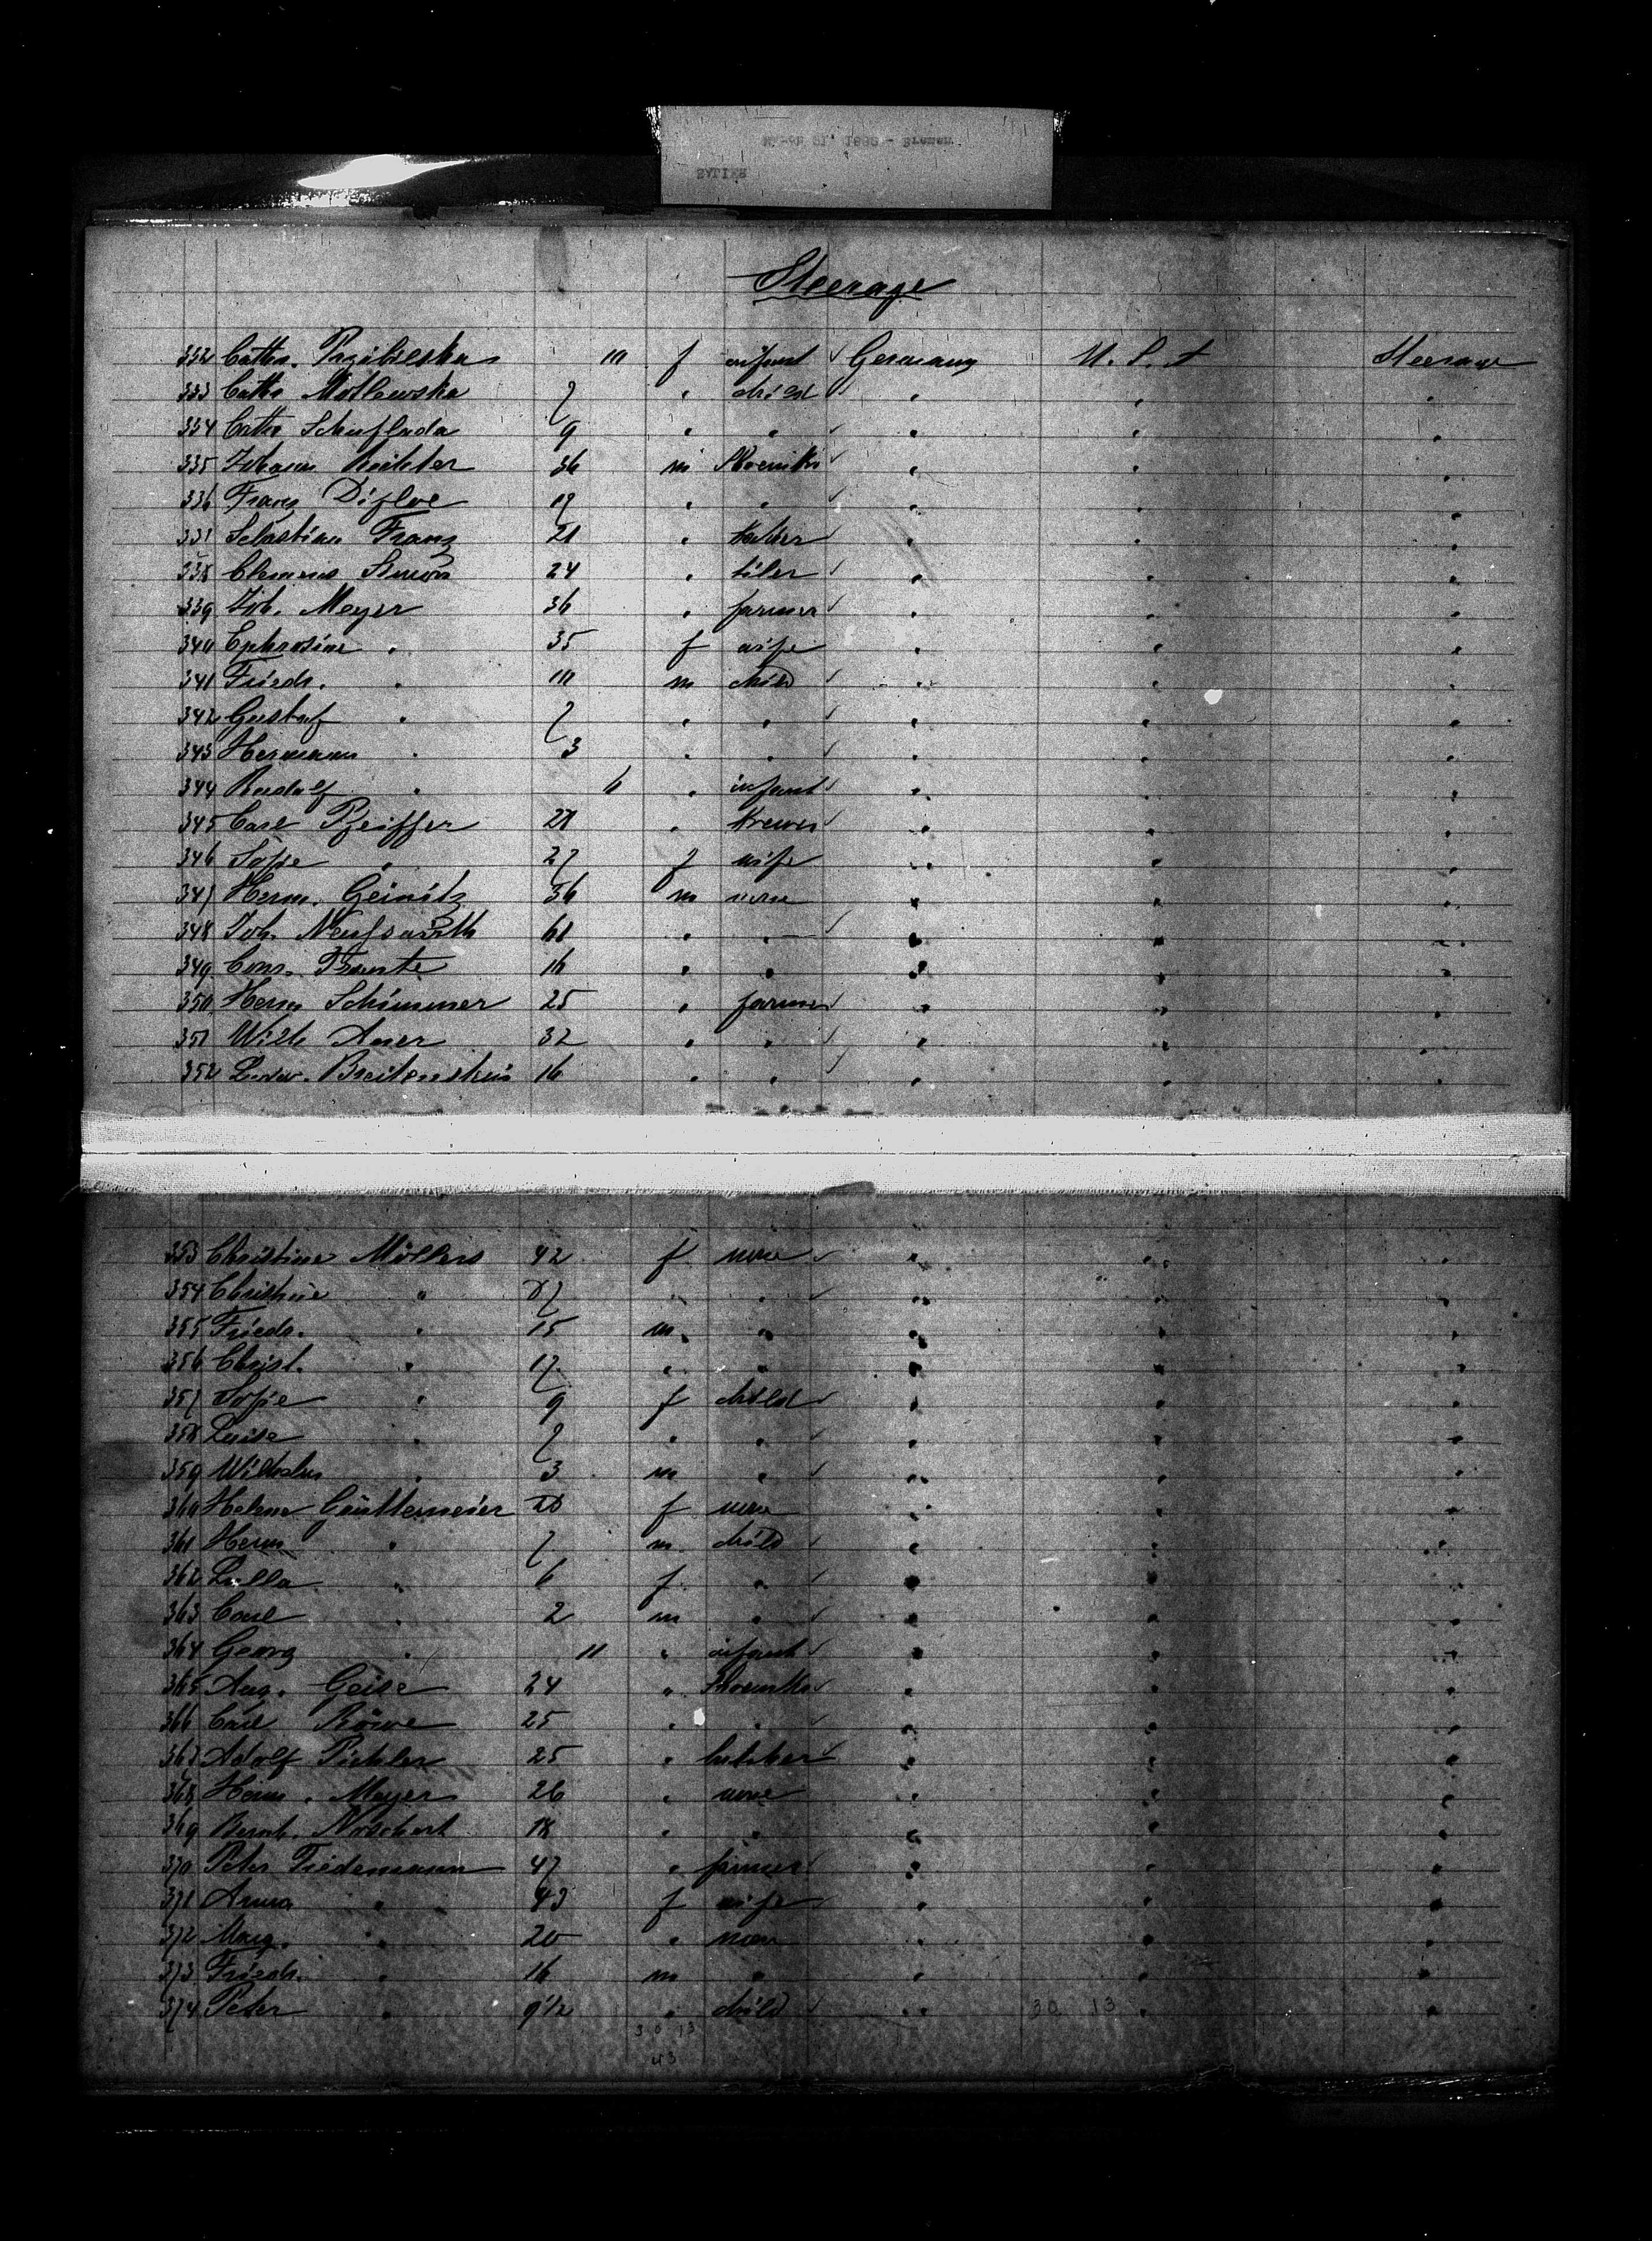 Steerage
332 Cathr. Przibilska 10 f infant ✓ Germany U. S. A Steerage
333 Cathr Motlewska 7 " child ✓ " " "
334 Cathr Schuflada 9 " " ✓ " " "
335 Johann Richter 36 m Shoemkr ✓ " " "
336 Franz 19 " " ✓ " " "
337 Sebastian Franz 21 " ✓ " " "
338 Clemens Simon 24 " tiler ✓ " " "
339 Joh. Meyer 36 " farmer ✓ " " "
340 Ephrosine " 35 f wife " " "
341 Friedr. " 10 m child ✓ " " "
342 Gustaf " 7 " " ✓ " " "
343 Hermann " 3 " " ✓ " " "
344 Rudolf " 6 " infant ✓ " " "
345 Carl Pfeiffer 28 " brewer ✓ " " "
346 Sofie " 27 f wife " " "
347 Herm. Geinitz 36 m none " " "
348 Joh. 61 " " ✓ " " "
349 Conr. Traute 16 " " " " "
350 Herm Schimmer 25 " farmer ✓ " " "
351 Wilh Auer 32 " " ✓ " " "
352 Ludw. Breitenstein 16 " " ✓ " " "
353 Christine Möllers 42 f none ✓ " " "
354 Christine " " " ✓ " " "
355 Friedr. " 15 m " " " "
356 Christ. " 12 " " " " "
357 Sofie " 9 f child ✓ " " "
358 Luise " 7 " " ✓ " " "
359 Wilhelm " 3 m " ✓ " " "
360 Helene f none " " "
361 Herm " 7 m child ✓ " " "
362 Lilla " 6 f " ✓ " " "
363 Carl " 2 m " ✓ " " "
364 Georg " 11 " infant ✓ " " "
365 Aug. Geise 24 " Shoemkr ✓ " " "
366 Carl Röwe 25 " " ✓ " " "
367 Adolf Pichler 25 " butcher ✓ " " "
368 Herm. Meyer 26 " none " " "
369 Bernh. 18 " " " " "
370 Peter Tiedemann 47 " farmer ✓ " " "
371 Anna " 43 f wife ✓ " " "
372 Marg. " 20 " none " " "
373 Friedr. " 16 m " " " "
374 Peter " 9 1/2 " child ✓ " " "
30 13
30 13
43